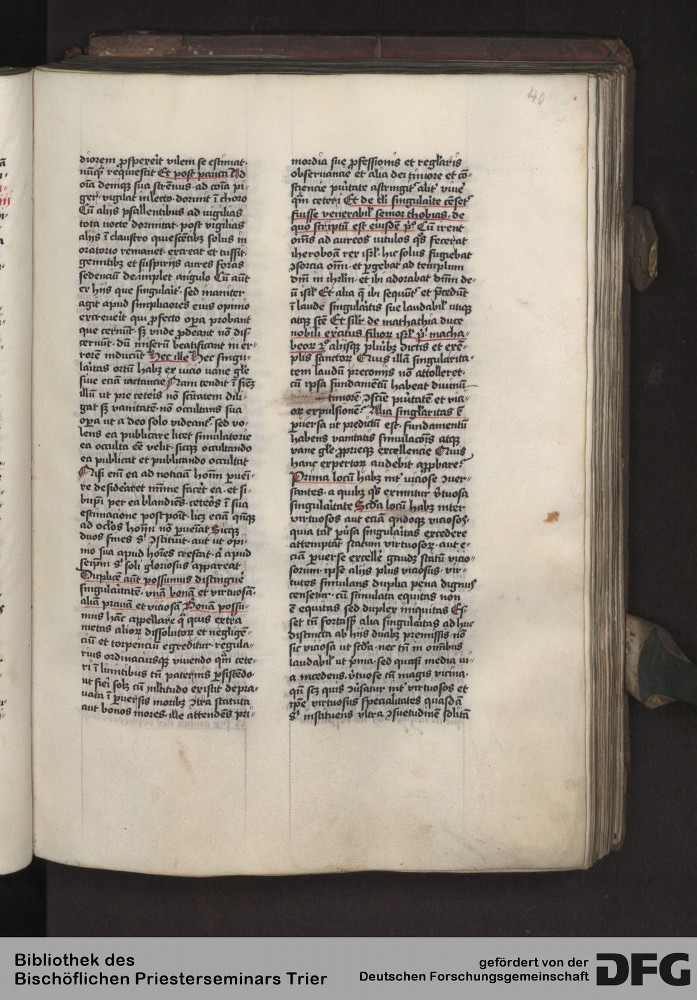 40
diorem ꝓspexerit vilem se estimat·
nūqͣ requiescit Et post pauca Ad
oīa deniqꝫ sua strenuus · ad cōia pi-
ger · vigilat in lecto · dormit ī choro
Cū alijs psallentibus ad vigilias
tota nocte dormitat · post vigilias
alijs ī claustro quiescētibꝫ solus in
oratorio remanet · excreat et tussit
gemitibꝫ et suspirijs aures foras
sedenciū de implet angulo Cū aūt
ex hijs que singulait · sed inaniter
agit apud simpliciores eius opinio
excreuerit qui ꝓfecto opa probant
que cernūt · sꝫ vnde ꝓdeant nō dis-
cernūt · dū miserū beatificant in er-
rorē inducūt Hec ille Hec singu-
laitas ortū habꝫ ex vicio vane gle
siue eciā iactancie Nam tendit ī finē
illū ut pre ceteris nō scitatem dili-
gat sꝫ vanitatē · nō occultans sua
opa ut a deo solo videant · sed vo-
lens ea publicare licet simulatorie
ea occulta eē velit · sicqꝫ occultando
ea publicat et publicando occultat
Nisi eni ea ad noticiā hoīm puēi-
re desideraret mīme facet ea · et si-
bijpi per ea blandiēs · ceteros ī sua
estimacione postponit · licꝫ eciā qn̄qꝫ
ad oclos hoīm nō pueniat Sicqꝫ
duos fines sͥ ꝯstituit · aut ut opi-
nio sua apud hoīes crescat · ā apud
seipm sͥ soli gloriosus appareat
Duplicē aūt possumus distinguē
singulaitatē · vnā bonā et virtuosā
aliā prauā et viciosā Bonā possu-
mus hāc appellare qͣ quis extra
metas alioꝝ dissolutoꝝ et negligē-
ciū et torpenciū egreditur · regula-
rius ordinaciusqꝫ viuendo qm̄ cete-
ri ī limitibus tn̄ paternis ꝑsistēdo
ut sicꝫ solꝫ cū mltitudo existit depra-
uata ī puersis moribꝫ ꝯtra statuta
aut bonos mores · ille attendēs pri-
mordia sue ꝓfessionis et reglaris
obseruancie et alia dei timore et cō-
sciencie puritate astringit aliter viuē
qm̄ ceteri Et de tli singulaite cēset
fuisse venerabilˢ senior thobias · de
quo scriptū est eiusdē pͦ Cū irent
om̄s ad aureos vitulos qͦs fecerat
iheroboā rex isrl hic solus fugiebat
ꝯsorcia om̄i · et pgebat ad templum
dn̄i in ihrlm · et ibi adorabat dn̄m de-
ū isrl Et alia qͣ ibi sequūt et pcedūt
ī laude singulaitis sue laudabilˢ utiqꝫ
atqꝫ scē Et silr de mathathia duce
nobili excitus filioꝝ isrl pͦ macha-
beoꝝ 2͛ · alijsqꝫ pluribꝫ dictis et exē-
plis sanctoꝝ Cuius illā singularita-
tem laudū preconijs nō attolleret ·
cū ipsa fundamētū habeat diuinū
timorē ꝯscie puritatē et vici-
oꝝ expulsionē Alia singlaritas ē
puersa ut predictū est · fundamentū
habens vanitatis simulacōis atqꝫ
vane gle · ꝓprieqꝫ excellencie Cuius
hanc expertoꝝ audebit appbare
Prima locū habꝫ int viciose ꝯuer-
santes · a quibꝫ qͥs eximitur ꝑ tuosā
singulaitatē Scda locū habꝫ inter
virtuosos aut eciā quosqꝫ viciosos
quia talˢ pͣusa singulaitas excedere
attemptat statum virtuosoꝝ · aut e-
ciā puerse excellē gaudꝫ statū vicio-
sorum · ipse alijs plus viciosus · vir-
tutes simulans duplici pena dignus
censetur · cū simulata equitas non
ē equitas sed duplex iniquitas Es-
set tn̄ fortassis alia singulaitas ad huc
distincta ab hijs duabꝫ premissis nō
sic viciosa ut scda · nec tn̄ in omībus
laudabilˢ ut pͥma · sed quasi media vi-
a incedens · ꝟtuose tn̄ magis vicina ·
qn̄ scꝫ quis ꝯuersatur int virtuosos et
ipe virtuosus specialitates quasdā
sͥ instituens vltra ꝯsuetudinē solitā
Bibliothek des
Bischöflichen Priesterseminars Trier
gefördert von der
Deutschen Forschungsgemeinschaft
DFG